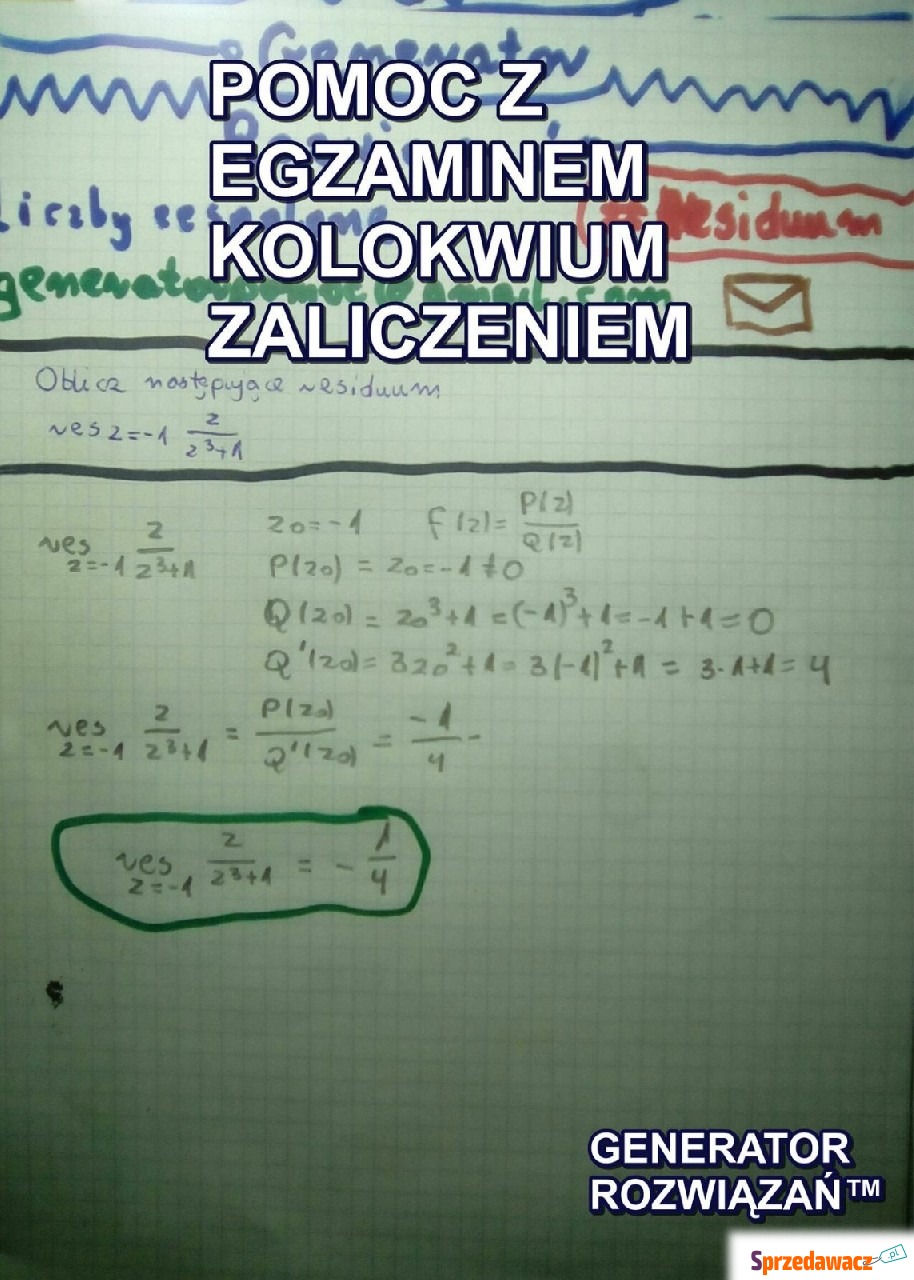 Generator
POMOC Z
EGZAMINEM
KOLOKWIUM
ZALICZENIEM
Liczby
# Residuum
Oblicz następujące residuum
res z=-1 z/(z³+1)
res z=-1 z/(z³+1) z0=-1 f(z)= P(z)/Q(z)
P(z0) = z0=-1≠0
Q(z0) = z0³+1=(-1)³+1=-1+1=0
Q'(z0)= 3z0²+1= 3(-1)²+1 = 3·1+1= 4
res z=-1 z/(z³+1) = P(z0)/Q'(z0) = -1/4 -
res z=-1 z/(z³+1) = - 1/4
GENERATOR
ROZWIĄZAŃ™
Sprzedawacz.pl